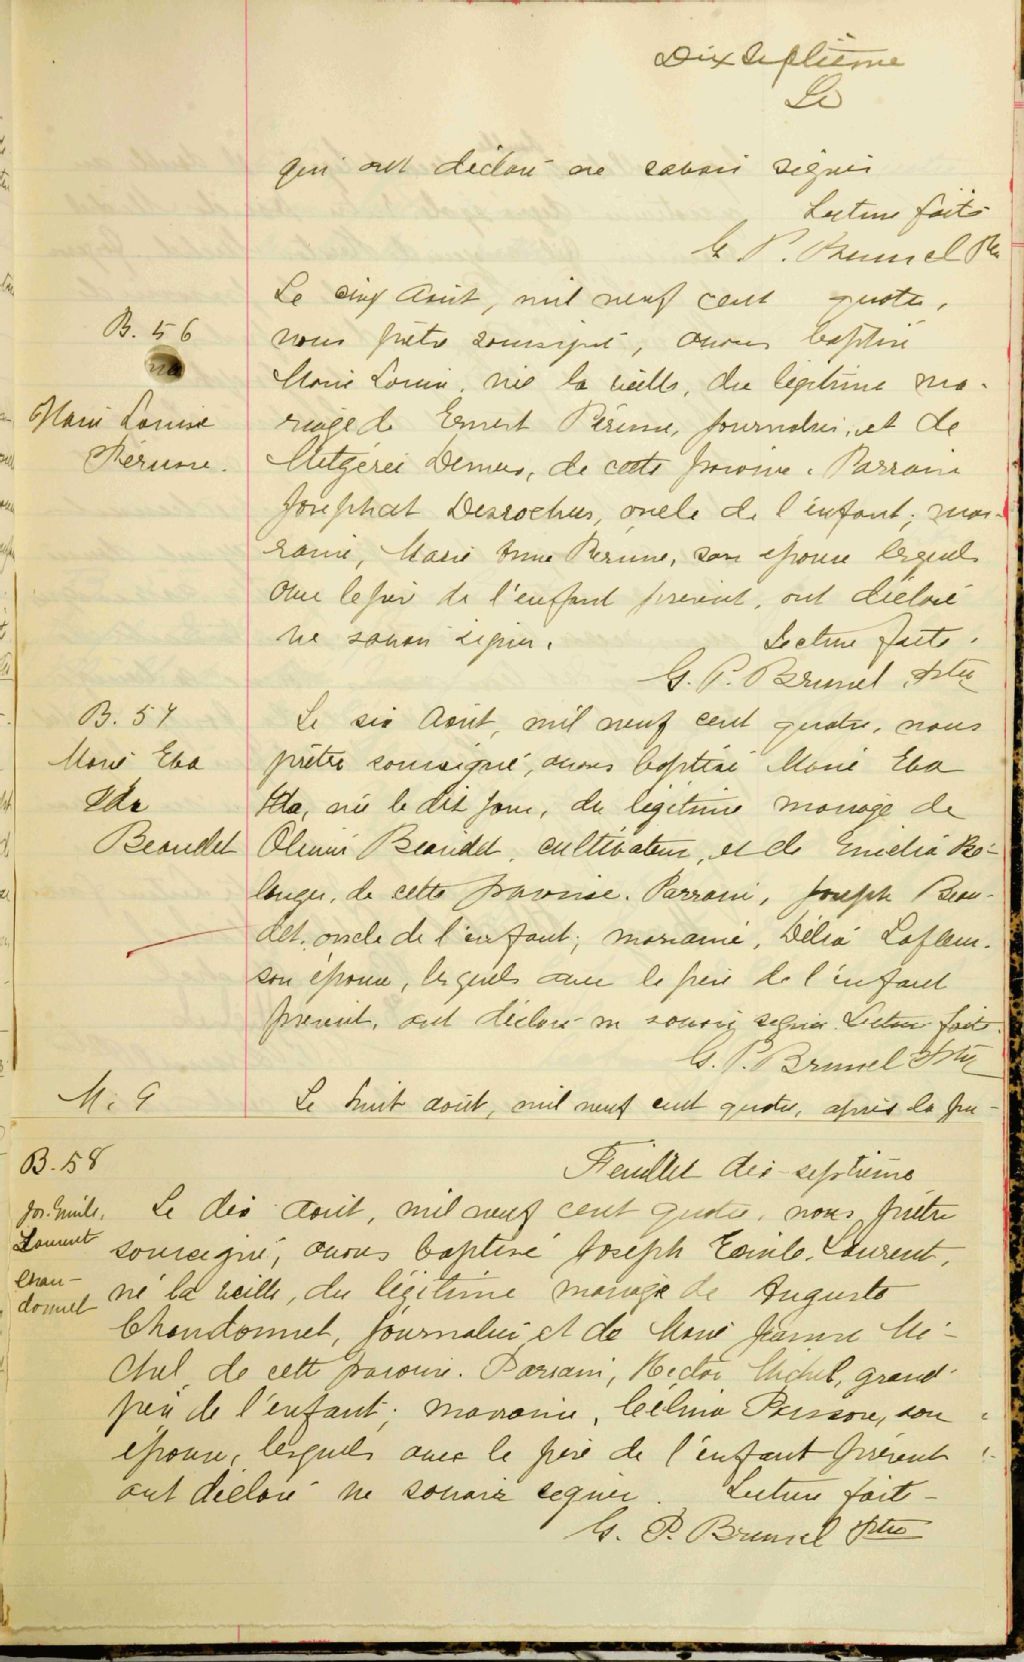 Dix Septième
Le
qui ont déclaré ne savoir signer
Lecture faite
G. P. Brunel Ptre
Le cinq Août, mil neuf cent quatre,
B. 56
nous prêtre soussigné, avons baptisé
na
Marie Louise, née la veille, du légitime ma-
Marie Louise
riage de Ernest Périnne, journalier, et de
Périnne.
Demers, de cette paroisse. Parrain
Josephat Desrochers, oncle de l'enfant; mar-
raine, Marie Anne Périnne, son épouse lesquels
avec le père de l'enfant présent, ont déclaré
ne savoir signer. Lecture faite.
G. P. Brunel, Ptre
B. 57
Le six Août, mil neuf cent quatre, nous
Marie Eva
prêtre soussigné, avons baptisé Marie Eva
Ida
Ida, née le dit jour, du légitime mariage de
Beaudet
Olivier Beaudet, cultivateur, et de Enédia Bé-
langer, de cette paroisse. Parrain, Joseph Beau-
det, oncle de l'enfant; marraine, Délia Lafleur,
son épouse, lesquels avec le père de l'enfant
présent, ont déclaré ne savoir signer. Lecture faite.
G. P. Brunel Ptre
M. 9
Le huit août, mil neuf cent quatre, après la pu-
B. 58
Feuillet dix-septième
Jos. Emile,
Le dix Août, mil neuf cent quatre, nous prêtre
Laurent
soussigné, avons baptisé Joseph Emile Laurent,
Chan-
né la veille, du légitime mariage de Auguste
donnet
Chandonnet, journalier, et de Marie Jeanne Mi-
chel, de cette paroisse. Parrain, Hector Michel, grand-
père de l'enfant; marraine, Célina Poisson, son
épouse, lesquels avec le père de l'enfant présent
ont déclaré ne savoir signer. Lecture faite -
G. P. Brunel Ptre